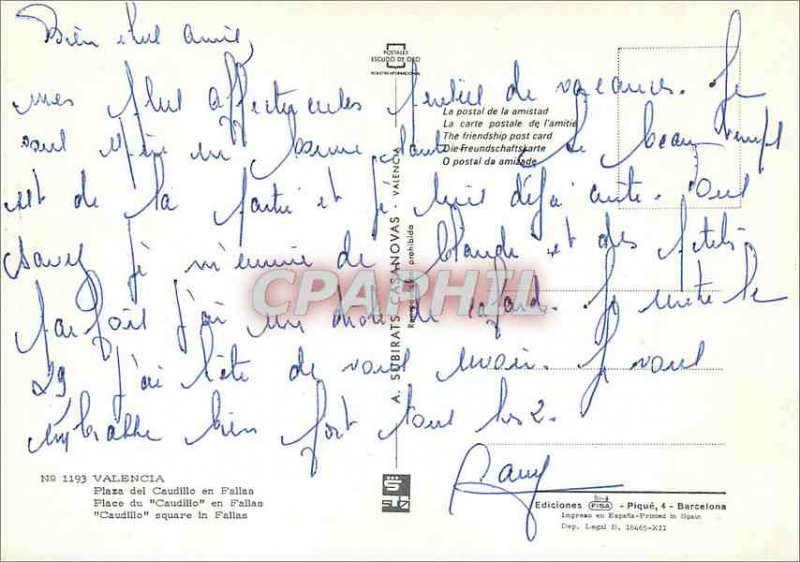 Bien chers amis,
mes plus affectueuses pensées de vacances. Je
vous espère en bonne santé. Le beau temps
est de la partie et je suis déjà cuite. Vous
savez je m'ennuie de Claude et des petits
parfois j'ai un drôle de cafard. Je rentre le
29 j'ai hâte de vous revoir. Je vous
embrasse bien fort tous les 2.
POSTALES
ESCUDO DE ORO
REGISTRO INTERNACIONAL
La postal de la amistad
La carte postale de l'amitié
The friendship post card
Die Freundschaftskarte
O postal da amizade
A. SUBIRATS CASANOVAS - VALENCIA
Reproducción prohibida
CPAPHIL
Nº 1193 VALENCIA
Plaza del Caudillo en Fallas
Place du "Caudillo" en Fallas
"Caudillo" square in Fallas
Ediciones FISA - Piqué, 4 - Barcelona
Impreso en España-Printed in Spain
Dep. Legal B. 16465-XII